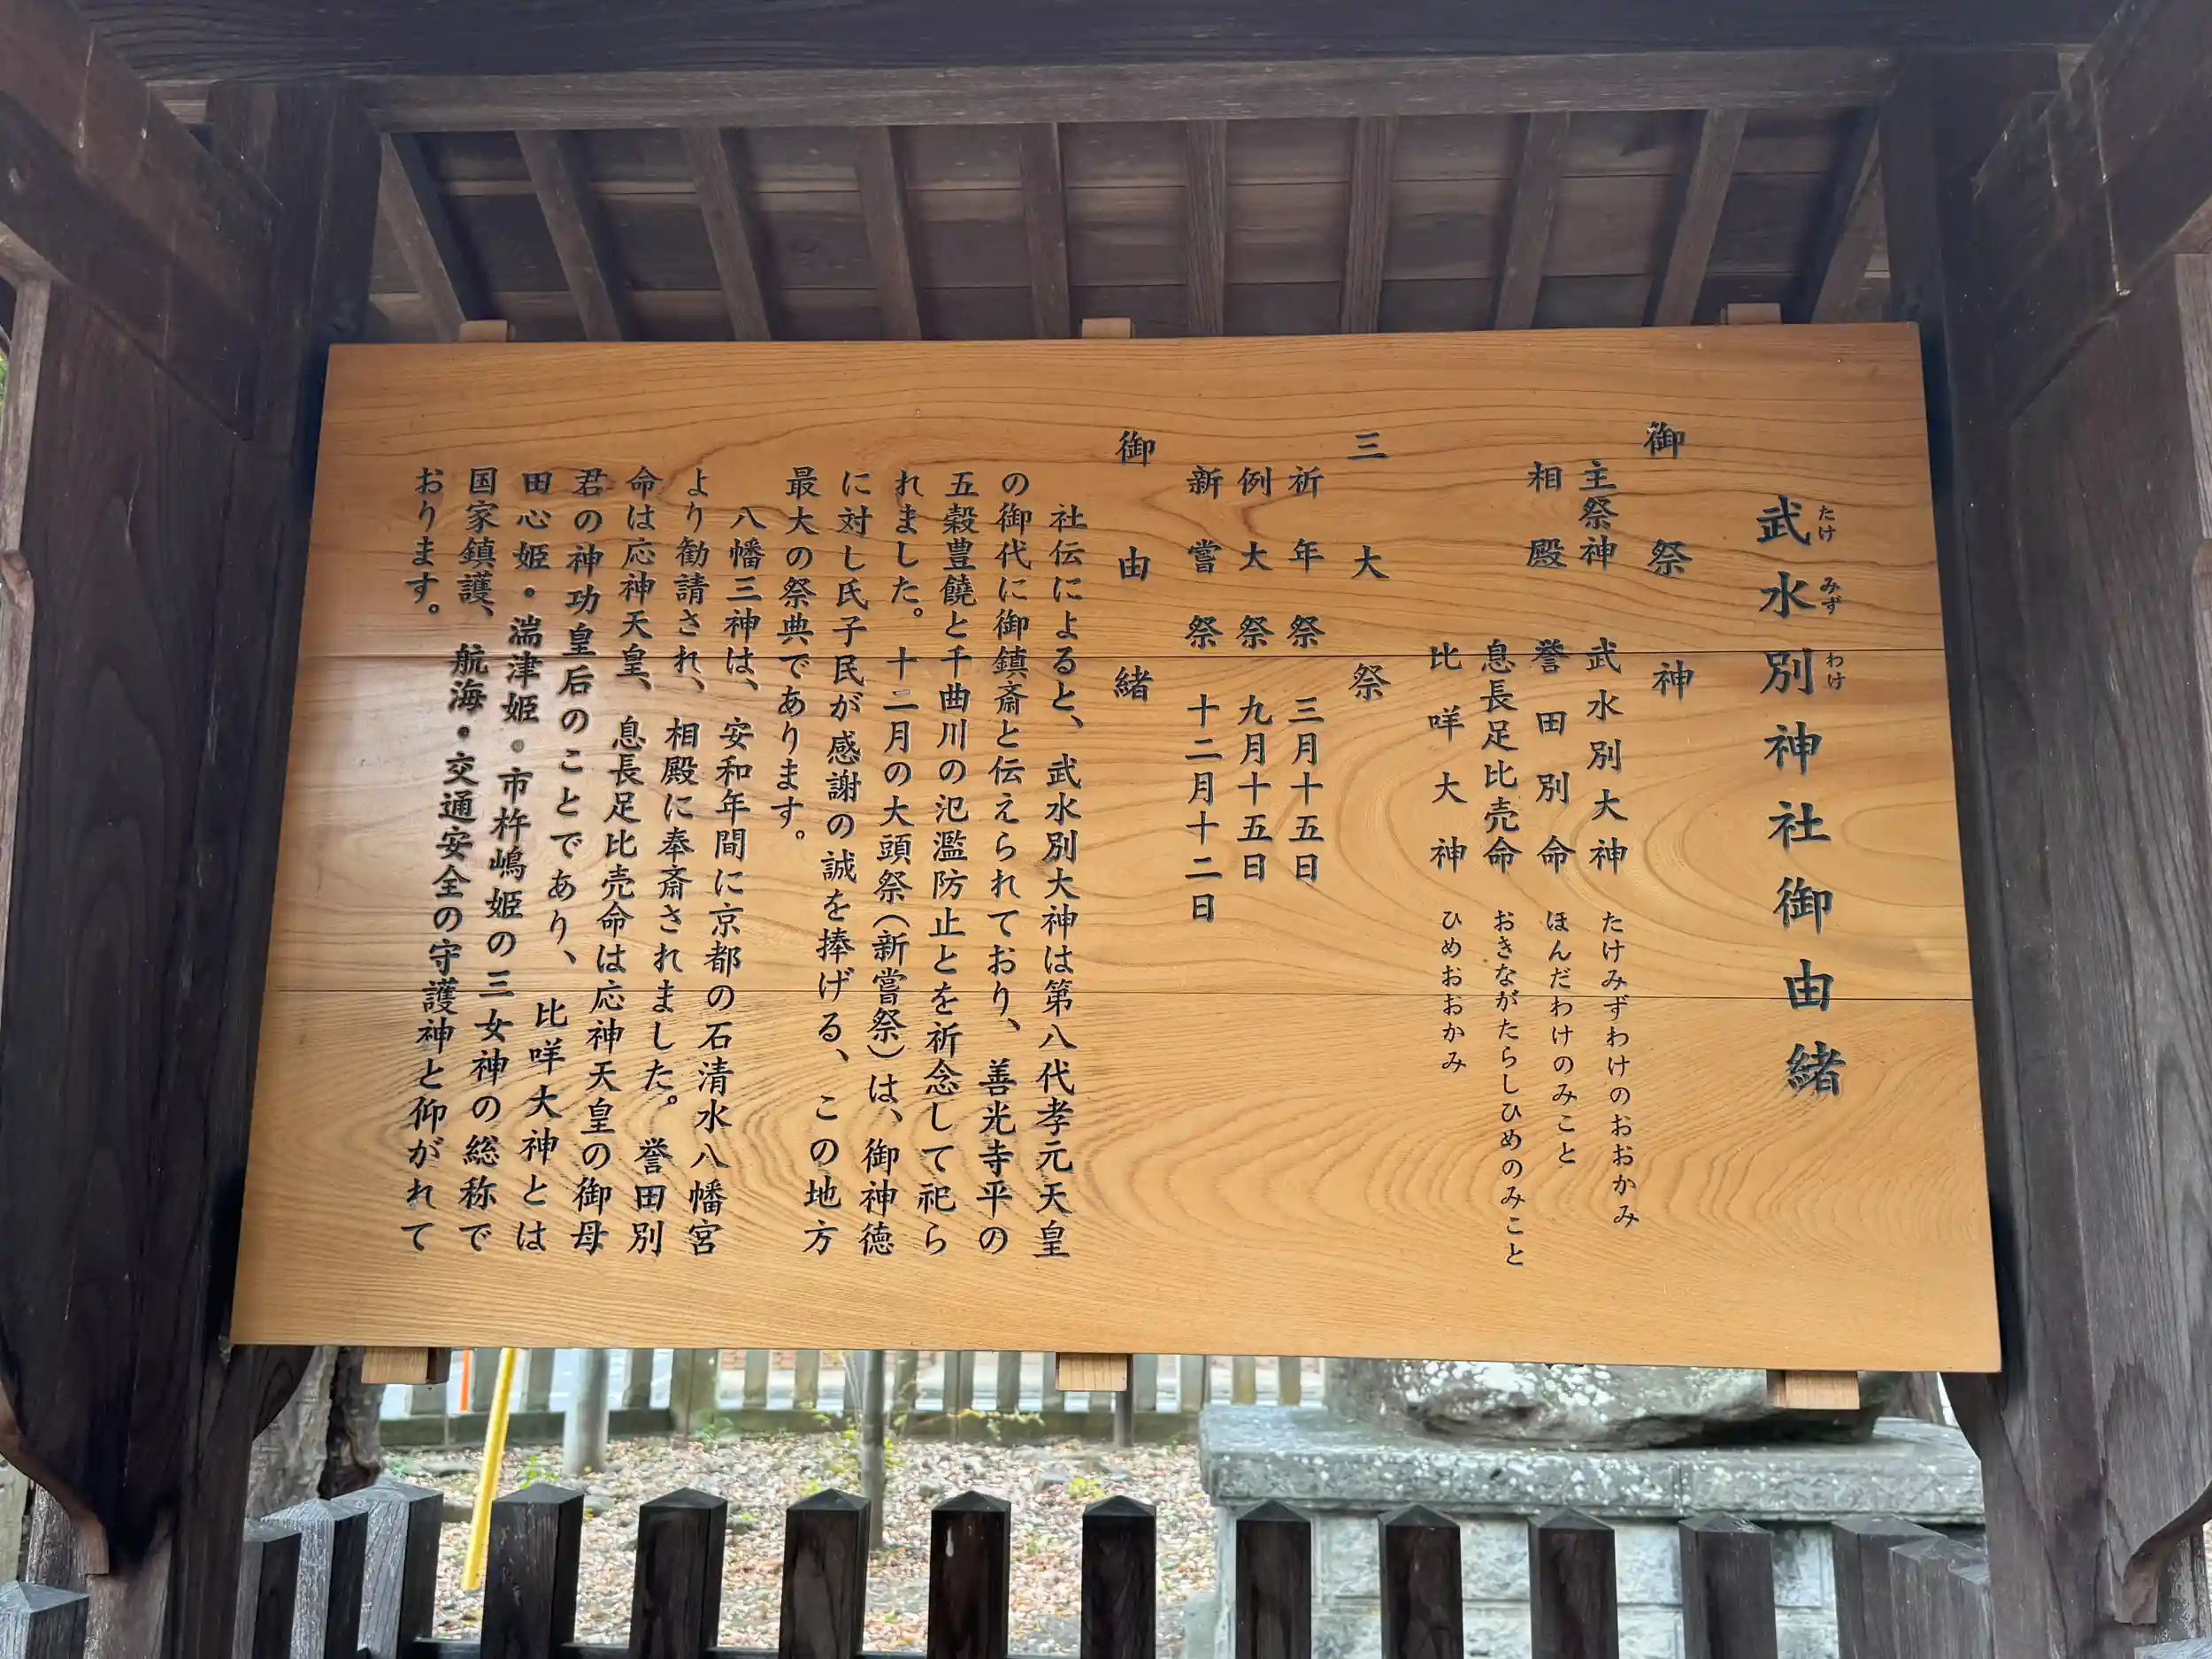 武水別神社御由緒
たけ みず わけ
御祭神
主祭神 武水別大神 たけみずわけのおおかみ
相殿 誉田別命 ほんだわけのみこと
息長足比売命 おきながたらしひめのみこと
比咩大神 ひめおおかみ
三大祭
祈年祭 三月十五日
例大祭 九月十五日
新嘗祭 十二月十二日
御由緒
社伝によると、武水別大神は第八代孝元天皇
の御代に御鎮斎と伝えられており、善光寺平の
五穀豊饒と千曲川の氾濫防止とを祈念して祀ら
れました。十二月の大頭祭(新嘗祭)は、御神徳
に対し氏子民が感謝の誠を捧げる、この地方
最大の祭典であります。
八幡三神は、安和年間に京都の石清水八幡宮
より勧請され、相殿に奉斎されました。誉田別
命は応神天皇、息長足比売命は応神天皇の御母
君の神功皇后のことであり、比咩大神とは
田心姫・湍津姫・市杵嶋姫の三女神の総称で
国家鎮護、航海・交通安全の守護神と仰がれて
おります。